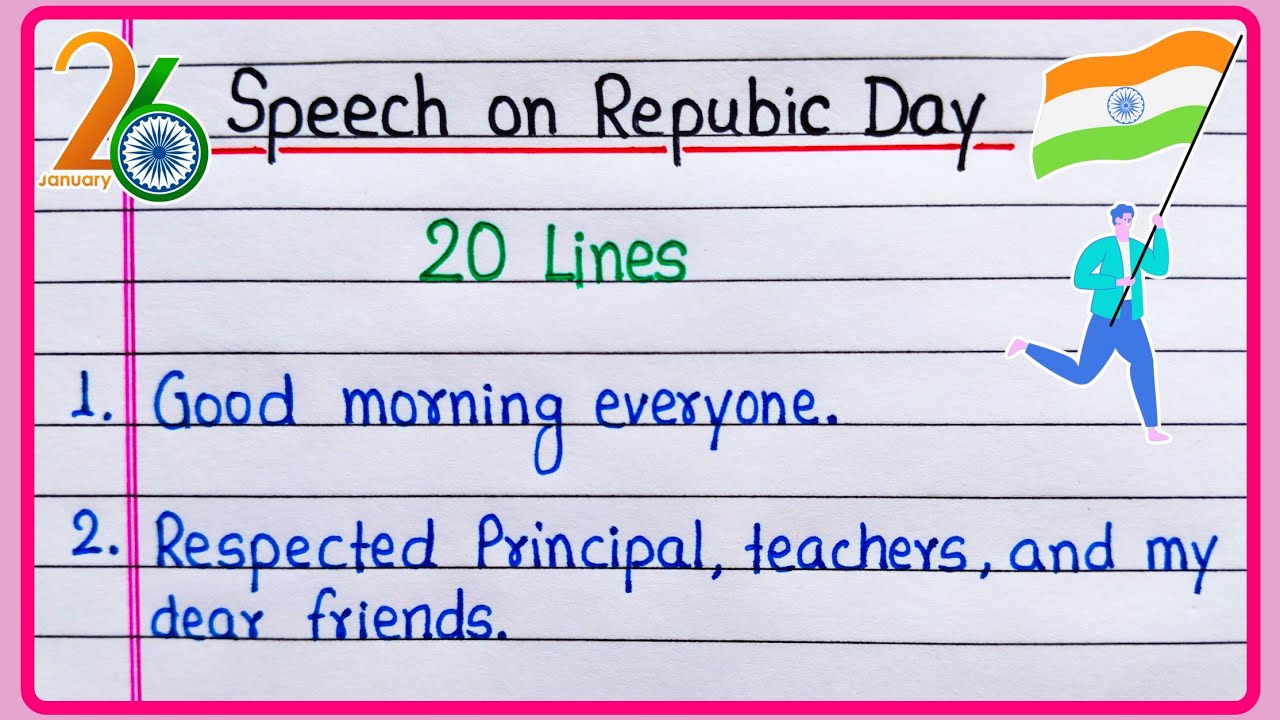 26
January
Speech on Repubic Day
20 Lines
1. Good morning everyone.
2. Respected Principal, teachers, and my
dear friends.